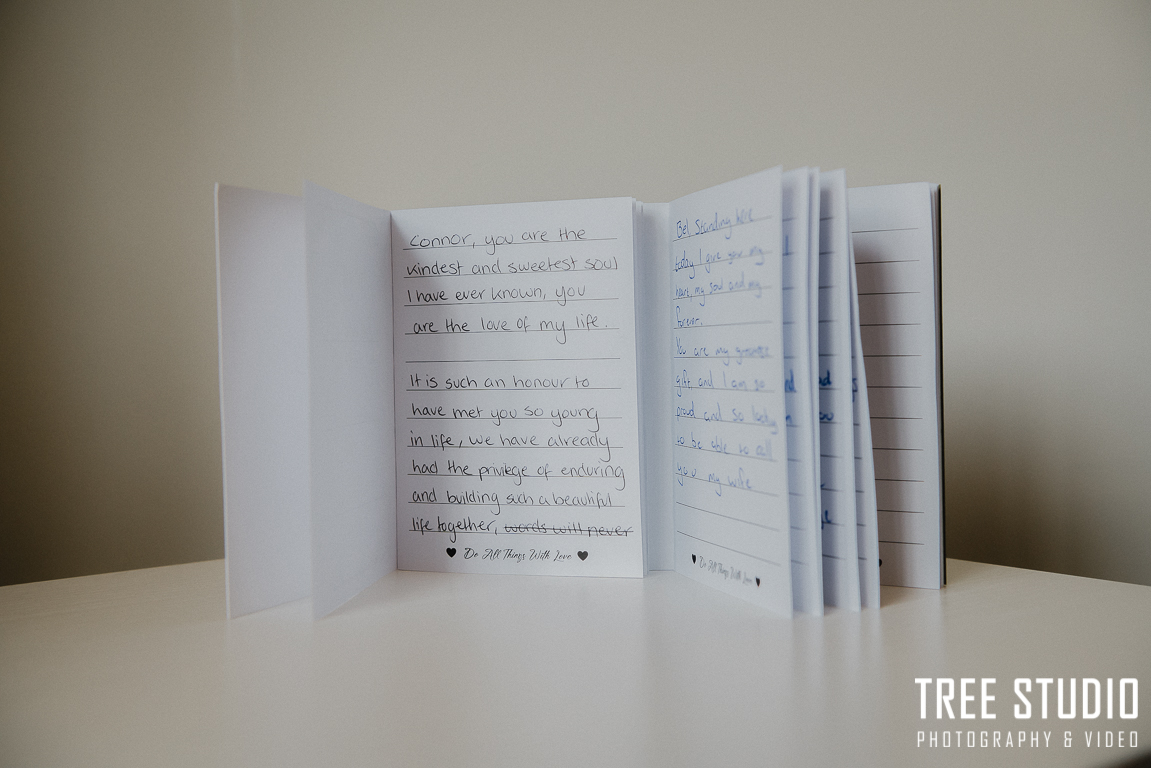 Connor, you are the
kindest and sweetest soul
I have ever known, you
are the love of my life.
It is such an honour to
have met you so young
in life, we have already
had the privilege of enduring
and building such a beautiful
life together, words will never
Do All Things With Love
Bel Standing here
today I give you my
heart, my soul and my
forever.
You are my greatest
gift, and I am so
proud and so lucky
to be able to call
you my wife
Do All Things With Love
TREE STUDIO
PHOTOGRAPHY & VIDEO